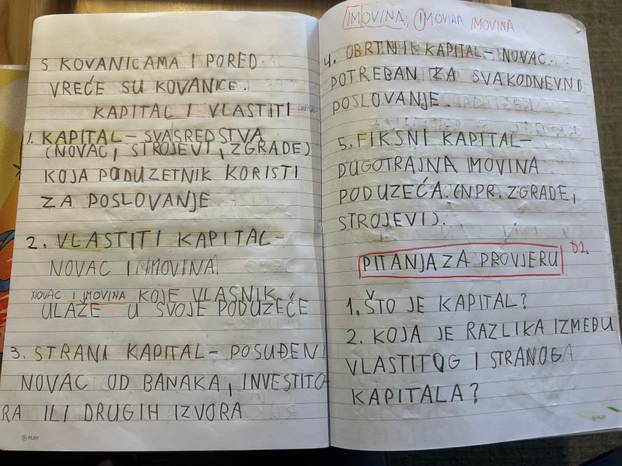 S KOVANICAMA I PORED
VREĆE SU KOVANICE.
KAPITAL I VLASTITI
1. KAPITAL – SVA SREDSTVA
(NOVAC, STROJEVI, ZGRADE)
KOJA PODUZETNIK KORISTI
ZA POSLOVANJE
2. VLASTITI KAPITAL –
NOVAC I IMOVINA
NOVAC I IMOVINA KOJE VLASNIK
ULAŽE U SVOJE PODUZEĆE
3. STRANI KAPITAL – POSUĐENI
NOVAC OD BANAKA, INVESTITO
RA ILI DRUGIH IZVORA
IMOVINA, IMOVINA IMOVINA
4. OBRTNIE KAPITAL – NOVAC
POTREBAN ZA SVAKODNEVNI
POSLOVANJE
5. FIKSNI KAPITAL –
DUGOTRAJNA IMOVINA
PODUZEĆA. (NPR. ZGRADE,
STROJEVI).
PITANJA ZA PROVJERU
1. ŠTO JE KAPITAL?
2. KOJA JE RAZLIKA IZMEĐU
VLASTITOG I STRANOGA
KAPITALA?